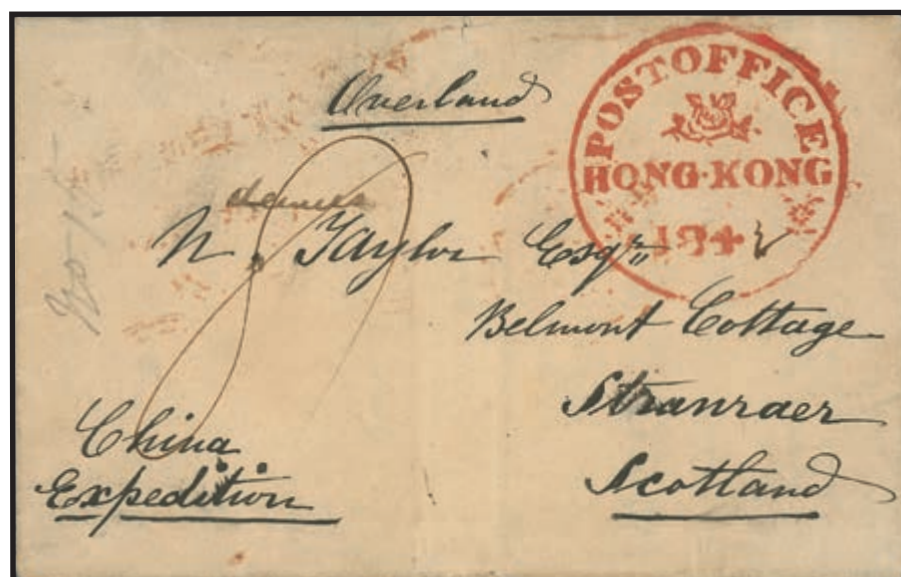 Overland
POST OFFICE
HONG·KONG
184
N. Taylor Esqr
Belmont Cottage
Stranraer
Scotland
China
Expedition
8